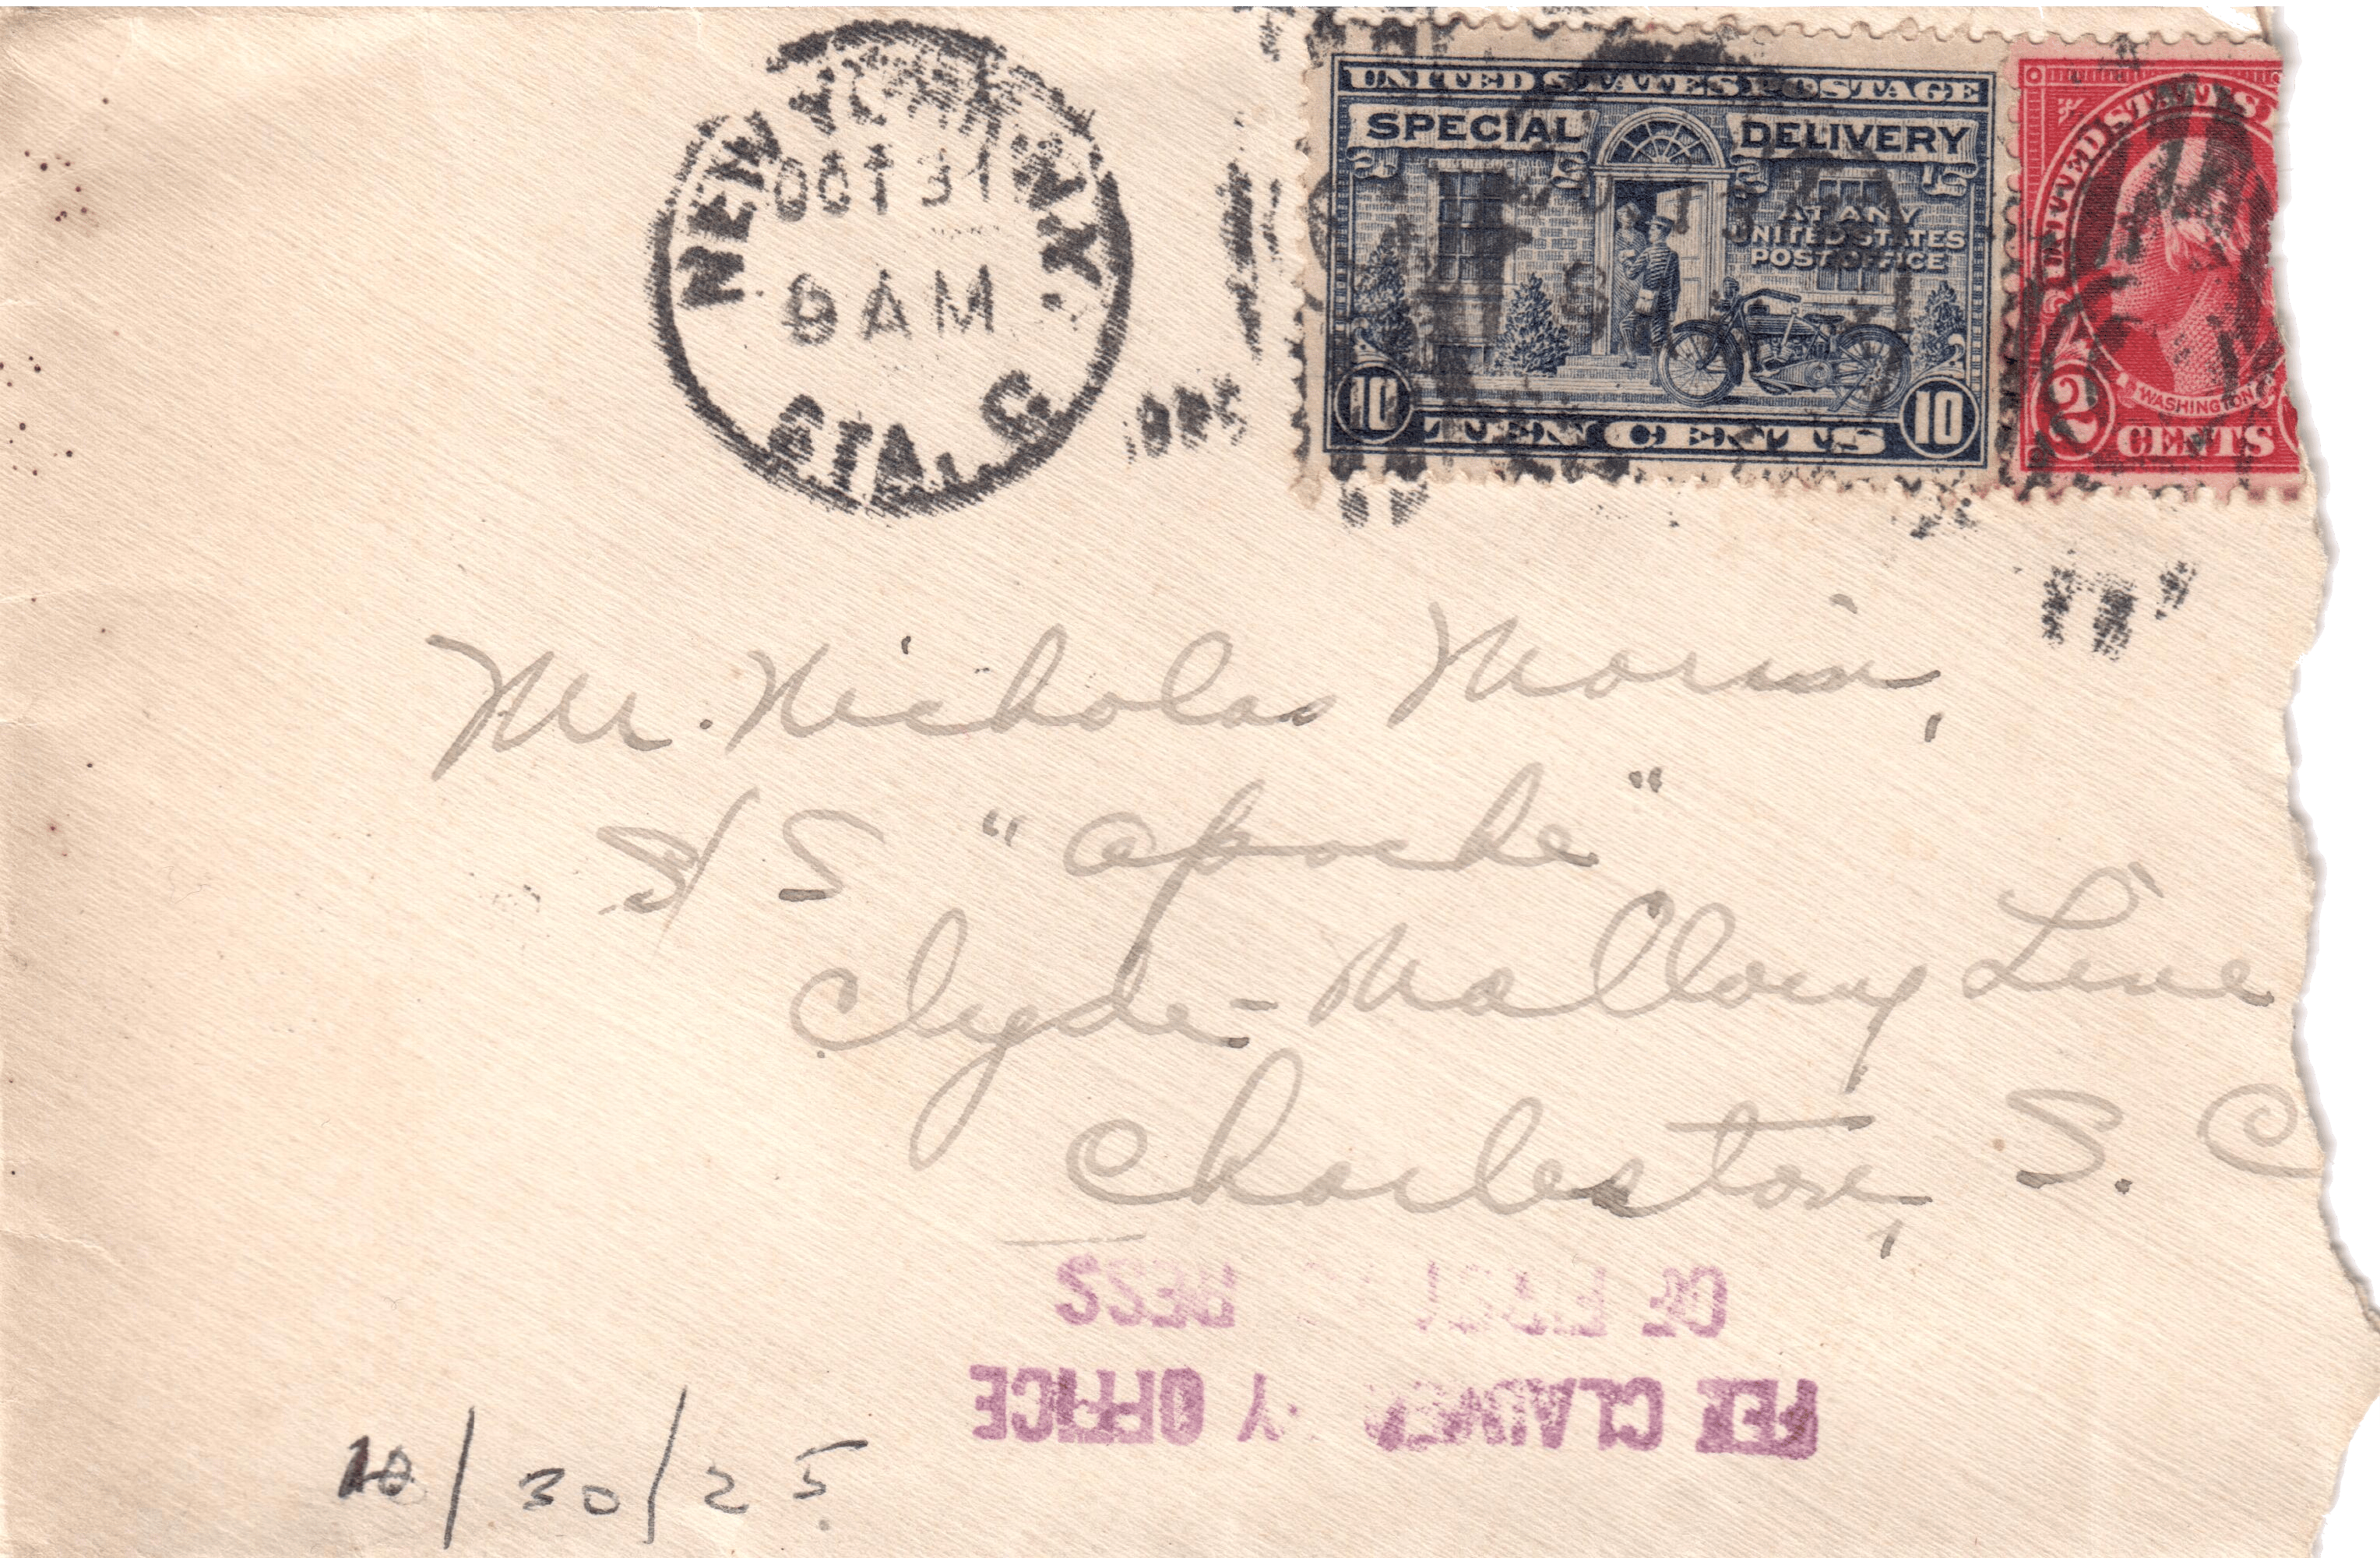 NEW YORK, N.Y.
OCT 31
9 AM
STA. C
1925
UNITED STATES POSTAGE
SPECIAL DELIVERY
AT ANY
UNITED STATES
POST OFFICE
10 TEN CENTS 10
UNITED STATES
WASHINGTON
2 CENTS
Mr. Nicholas Morin,
S/S "Apache"
Clyde-Mallory Line
Charleston, S. C
FEE CLAIMED BY OFFICE
OF FIRST
10/30/25